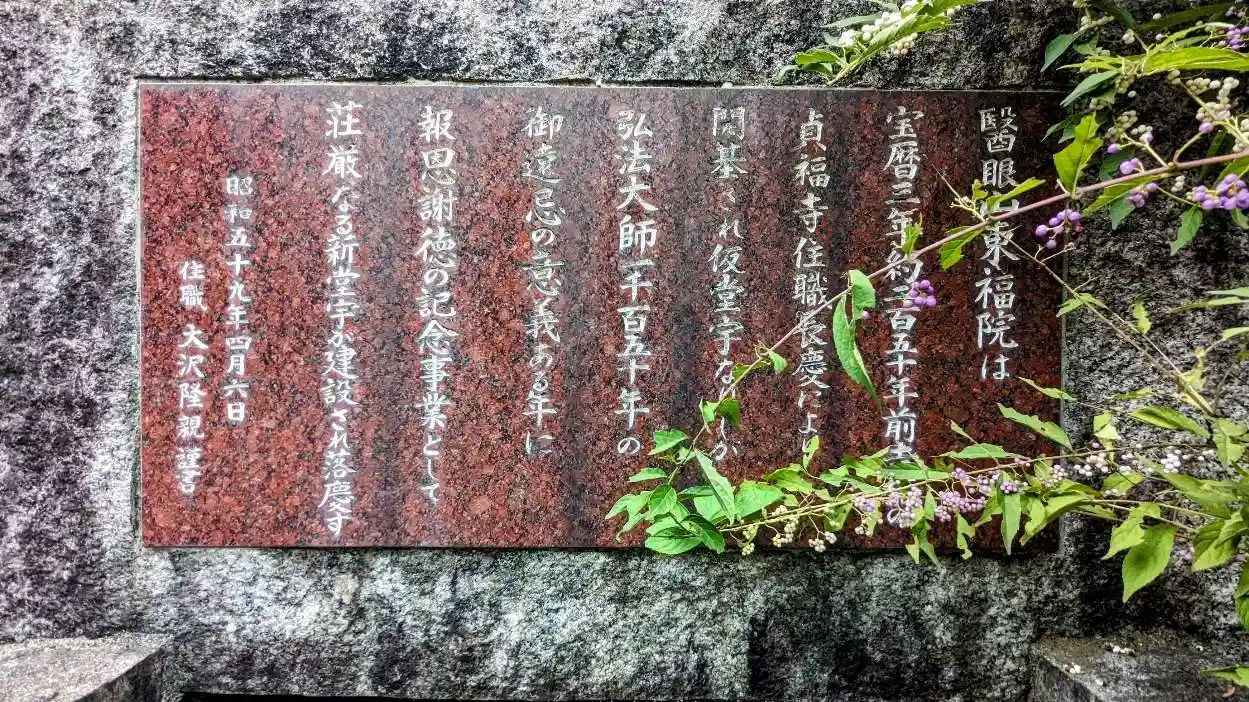 醫眼山東福院は
宝暦三年約二百五十年前
貞福寺住職長慶により
開基され仮堂宇なりしか
弘法大師一千百五十年の
御遠忌の意義ある年に
報恩謝徳の記念事業として
荘厳なる新堂宇が建設され落慶す
昭和五十九年四月六日
住職 大沢隆視 謹書